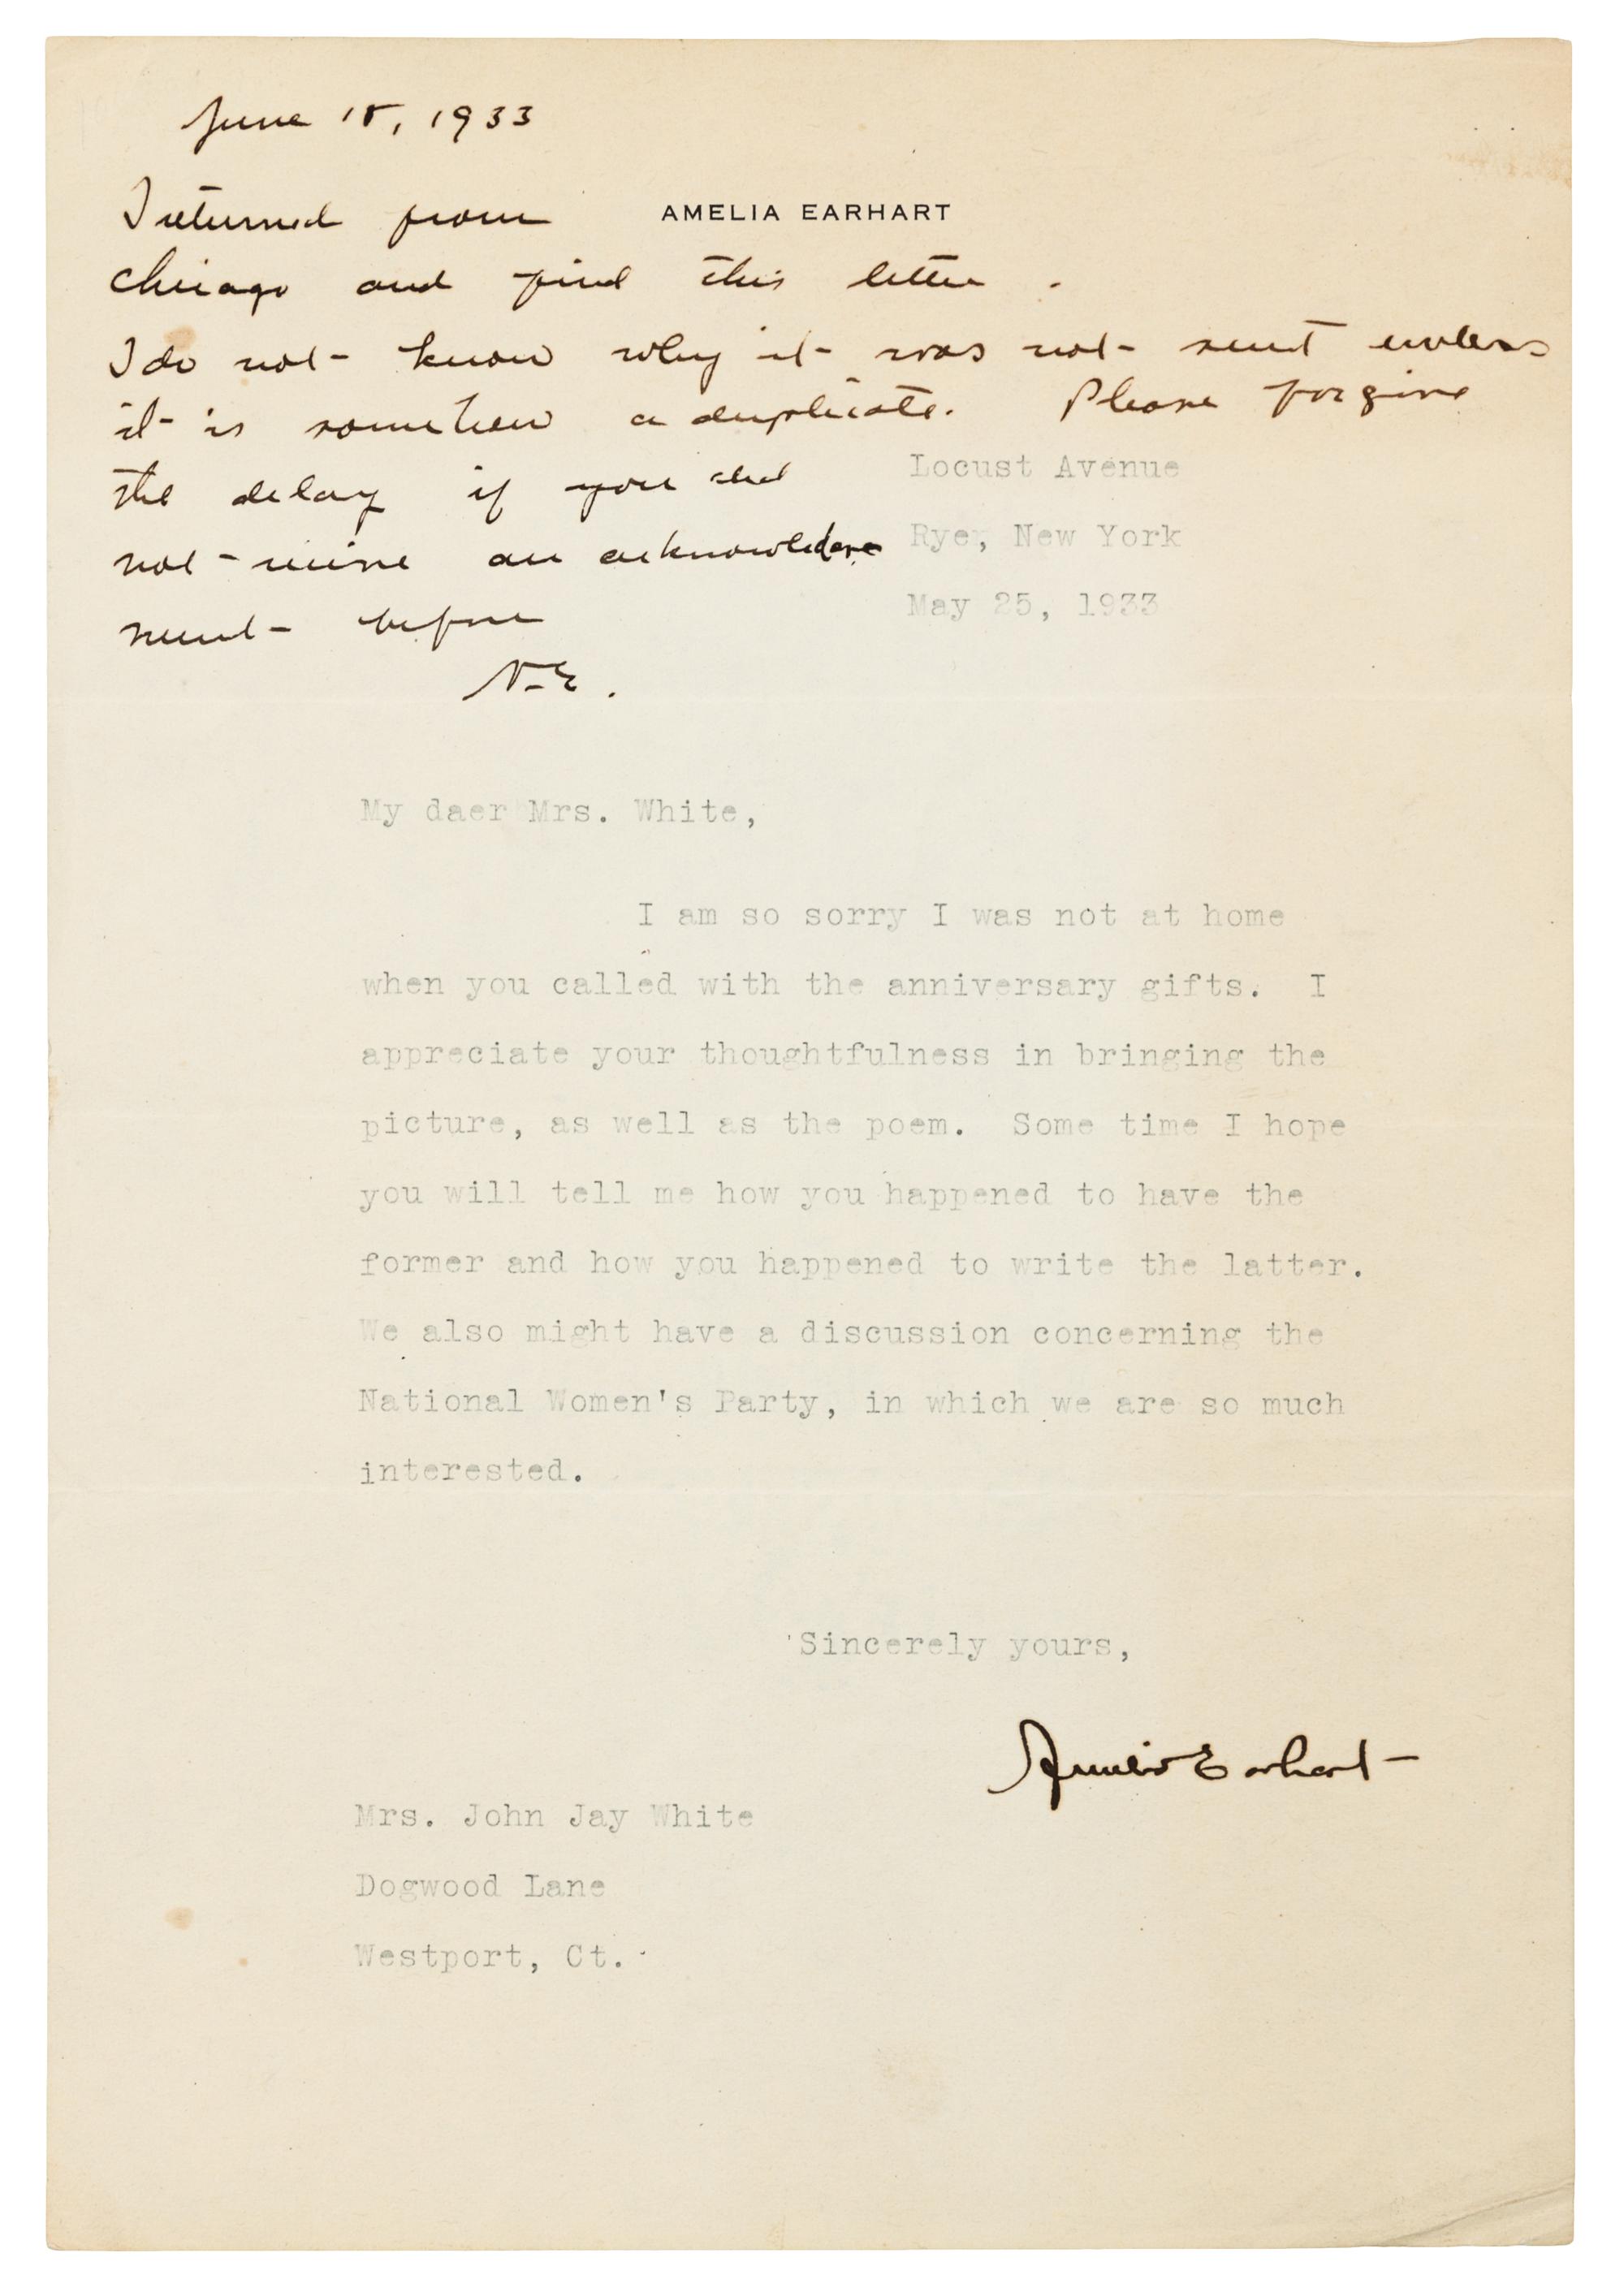 June 18, 1933
I returned from
Chicago and find this letter.
I do not know why it was not sent unless
it is somehow a duplicate. Please forgive
the delay if you did
not receive an acknowledge-
ment before
A.E.
AMELIA EARHART
Locust Avenue
Rye, New York
May 25, 1933
My daer Mrs. White,
I am so sorry I was not at home
when you called with the anniversary gifts. I
appreciate your thoughtfulness in bringing the
picture, as well as the poem. Some time I hope
you will tell me how you happened to have the
former and how you happened to write the latter.
We also might have a discussion concerning the
National Women's Party, in which we are so much
interested.
Sincerely yours,
Amelia Earhart
Mrs. John Jay White
Dogwood Lane
Westport, Ct.